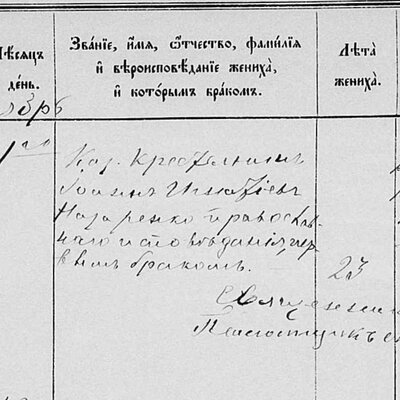 Мѣсяцъ
день.
Зва́нїе, и́мя, ѻ҆́тчество, фами́лїя
и҆ вѣроисповѣ́данїе жениха̀,
и҆ кото́рымъ бра́комъ.
Лѣта̀
жениха̀.
Каз. Крестьянинъ
Іоаннъ Игнатіевъ
Назаренко православ
наго исповѣданія, пер
вымъ бракомъ.
23
Священник